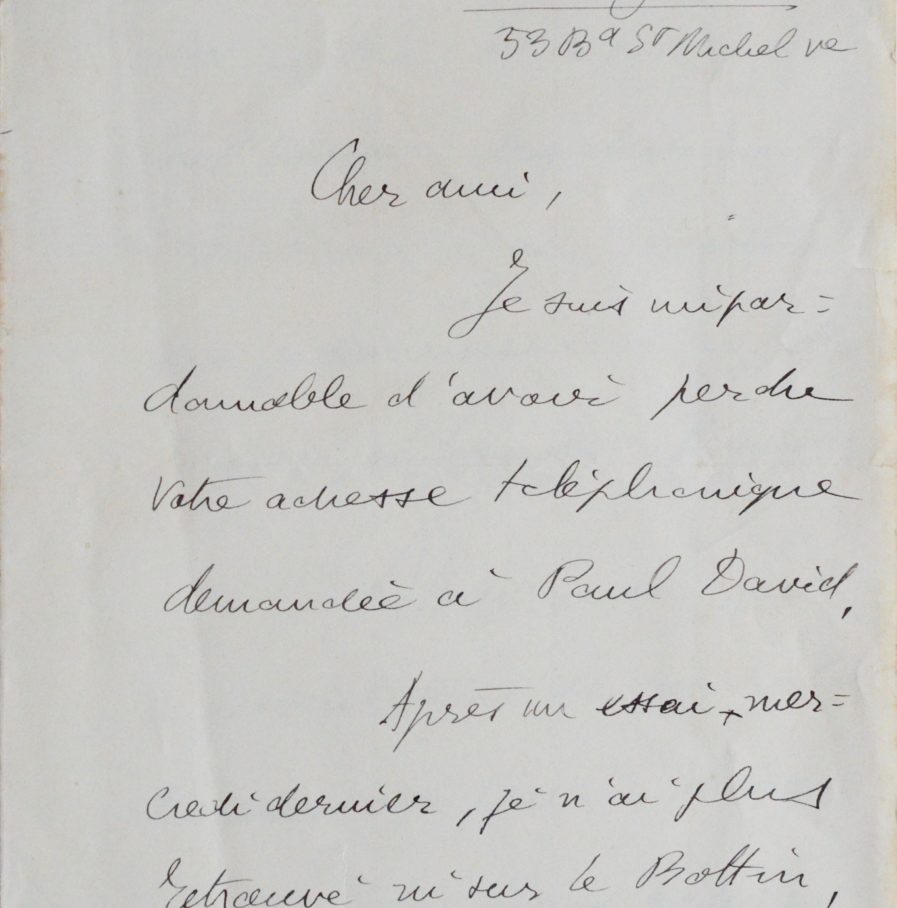 53 Bd St Michel Ve
Cher ami,
Je suis impar=
donnable d'avoir perdu
votre adresse téléphonique
demandée à Paul David,
Après un essai, mer=
credi dernier, je n'ai plus
retrouvé ni sur le Bottin,